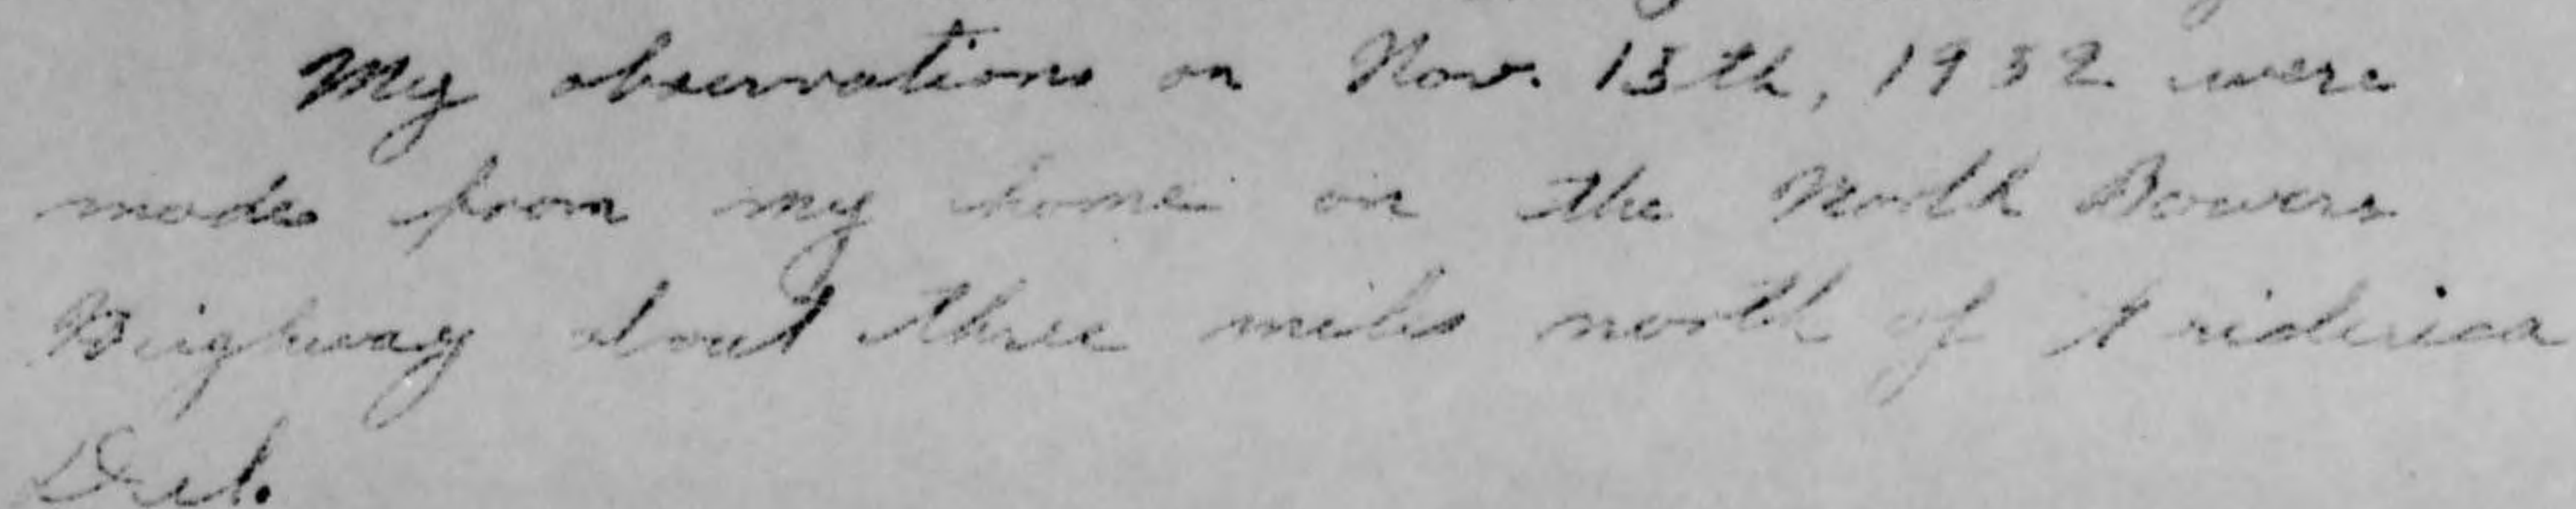 My observations on Nov. 15th, 1932 were
made from my home on the North Bowers
Heighway about three miles north of Friderica
Del.